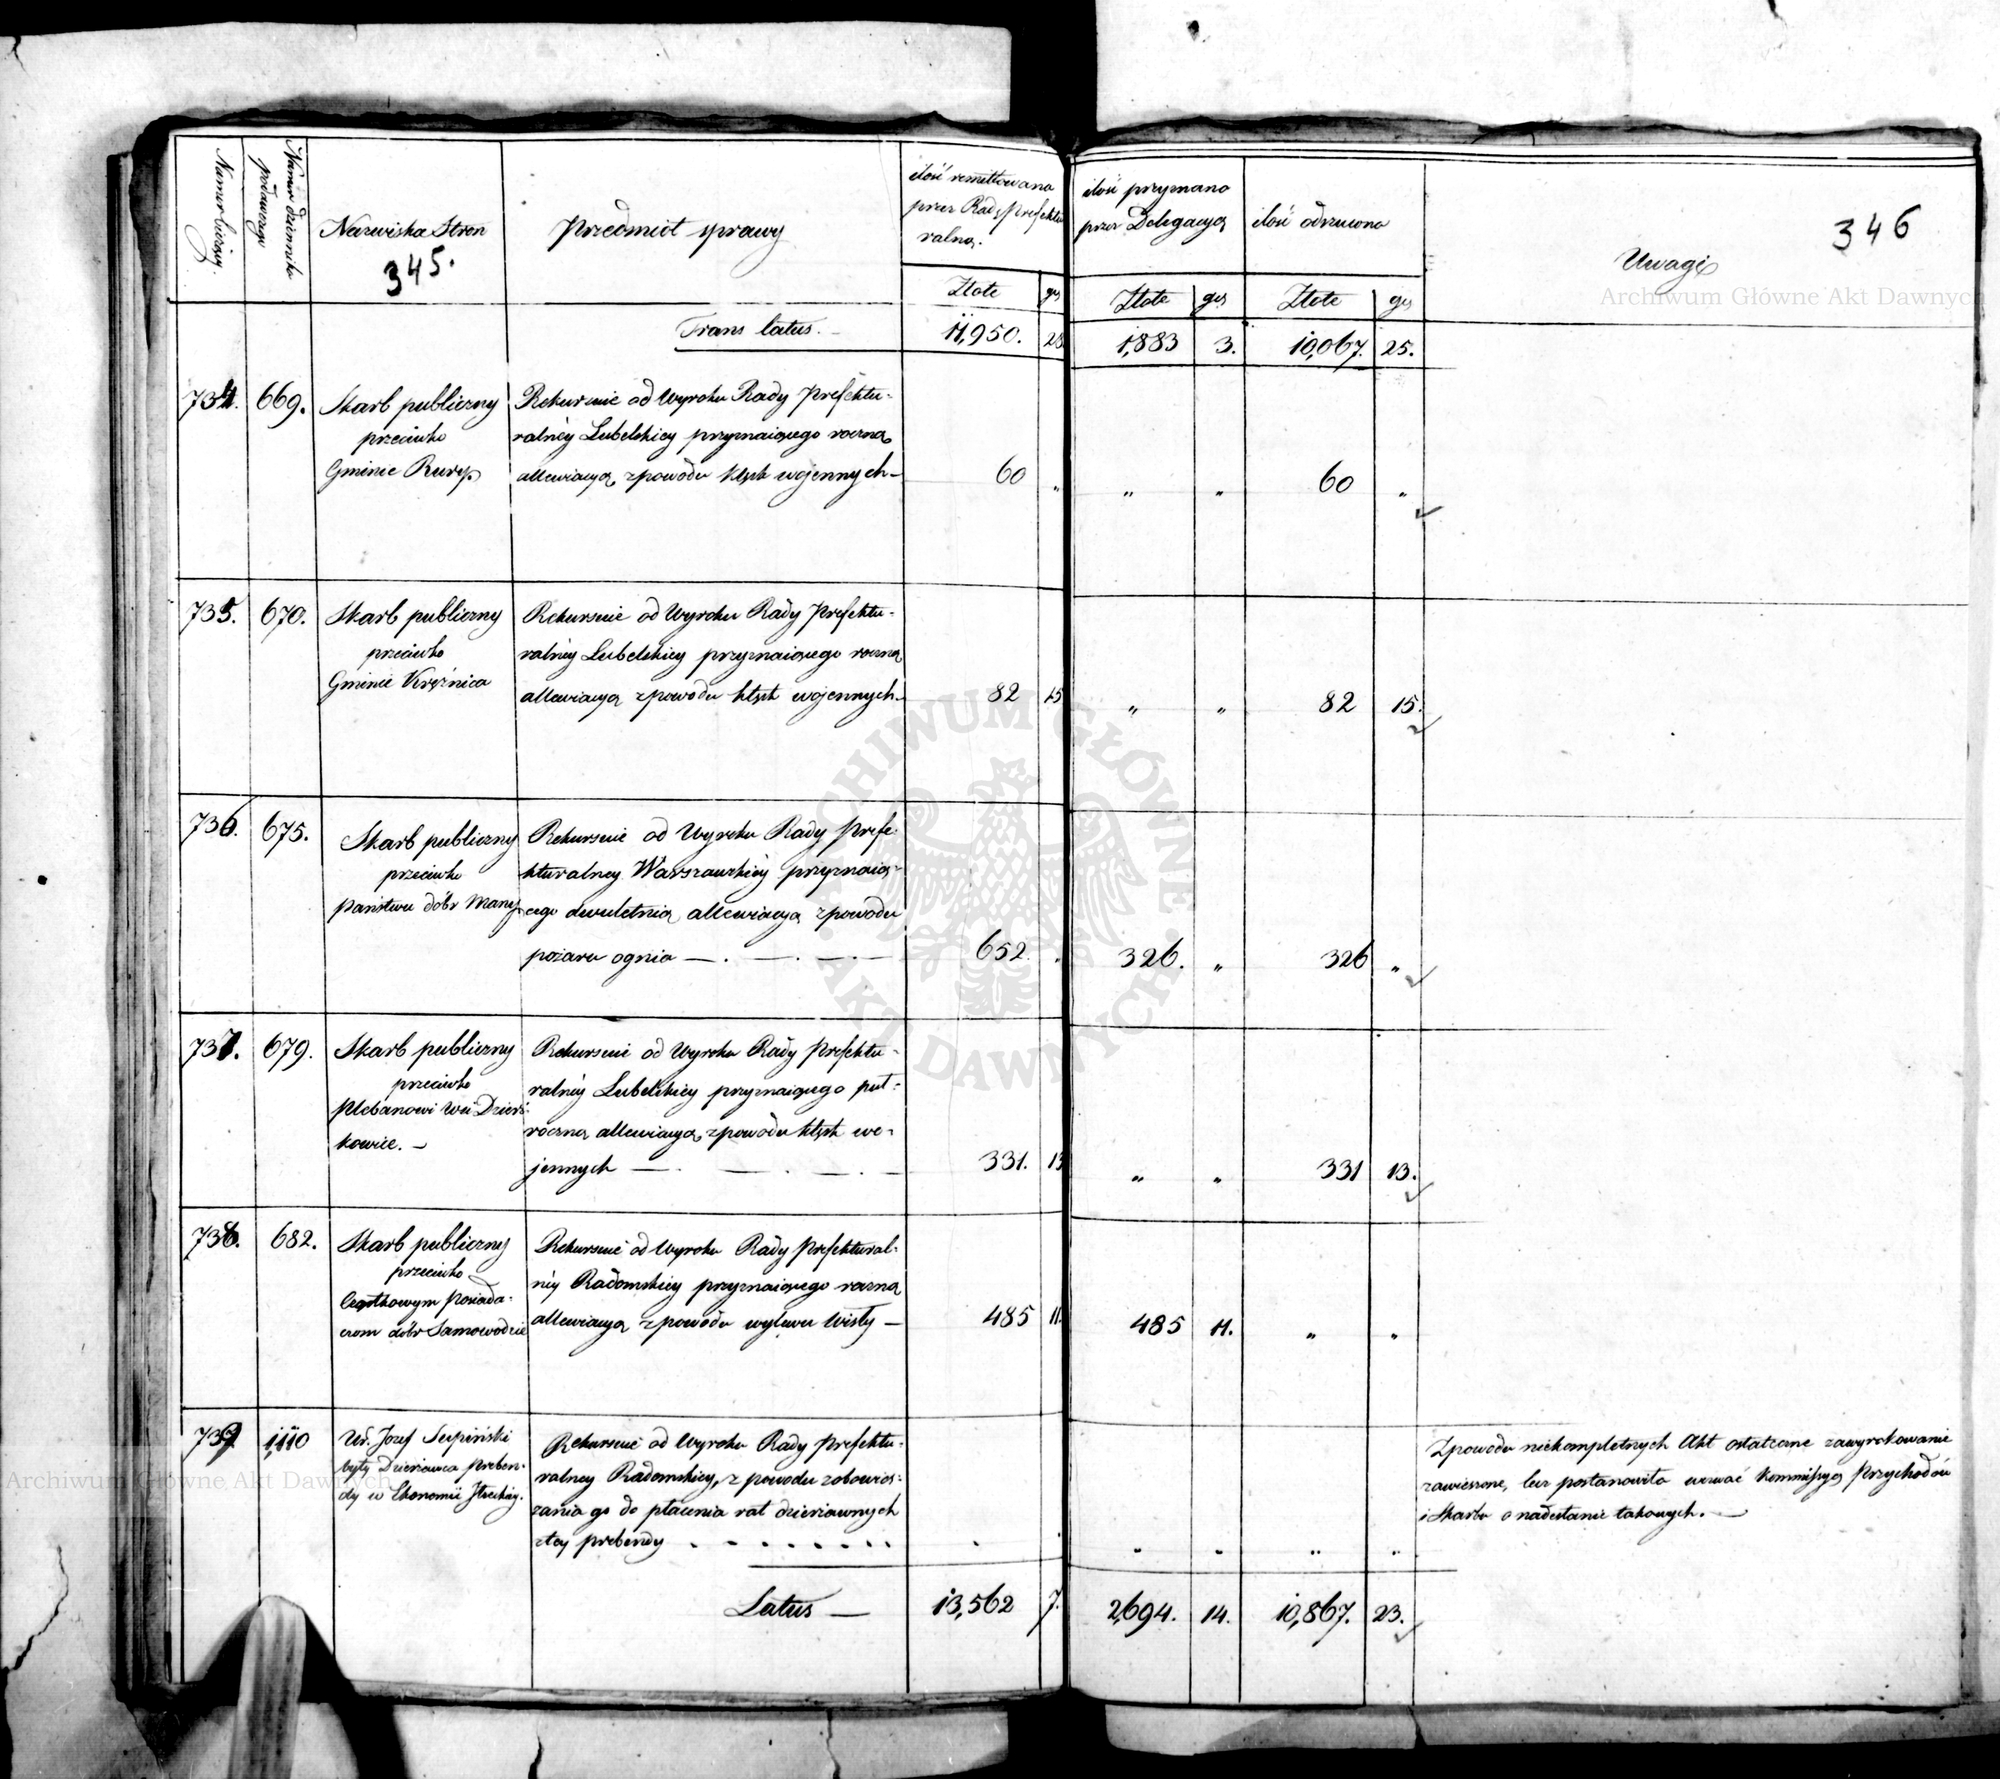 Numer bieżący
Numer dziennika
podawczego
Nazwiska Stron
345.
Przedmiot sprawy
ilość remittowana
przez Radę Prefektu
ralną.
Złote
gr
ilość przyznana
przez Delegacyą
Złote
gr
ilość odrzucona
Złote
gr
346
Uwagi
Archiwum Główne Akt Dawnych
Trans latus.
11,950. 28
1,883 3. 10,067. 25.
734. 669. Skarb publiczny
przeciwko
Gminie Rury
Rekursuie od Wyroku Rady Prefektu-
ralnéy Lubelskiey przyznaiącego roczną
allewiacyą z powodu klęsk wojennych —
60 „ „ „ 60 „
735. 670. Skarb publiczny
przeciwko
Gminie Krężnica
Rekursuie od Wyroku Rady Prefektu-
ralnéy Lubelskiey przyznaiącego roczną
allewiacyą z powodu klęsk wojennych.
82 15 „ „ 82 15.
736. 675. Skarb publiczny
przeciwko
Państwu dóbr Many
Rekursuie od Wyroku Rady Prefe-
kturalney Warszawskiéy przyznaią-
cego dwuletnią allewiacyą z powodu
pożaru ognia — . — . — . —
652. „ 326. „ 326 „
737. 679. Skarb publiczny
przeciwko
Plebanowi Wsi Dzierz-
kowice. —
Rekursuie od Wyroku Rady Prefektu-
ralnéy Lubelskiey przyznaiącego puł-
roczną allewiacyą z powodu klęsk wo-
jennych — . — . — . —
331. 13 „ „ 331 13.
738. 682. Skarb publiczny
przeciwko
Cząstkowym Posiada-
czom dóbr Samowodzie
Rekursuie od Wyroku Rady Prefektural-
néy Radomskiey przyznaiącego roczną
allewiacyą z powodu wylewu Wisły —
485 11. 485 11. „ „
739 1,110 Ur. Jozef Serpiński
były Dzierżawca Preben-
dy w Ekonomii
Rekursuie od Wyroku Rady Prefektu-
ralney Radomskiey, z powodu zobowią-
zania go do płacenia rat dzierżawnych
z tey prebendy . . . . . . . .
Z powodu niekompletnych Akt ostateczne zawyrokowanie
zawieszone, lecz postanowiła wezwać Kommissyą Przychodów
i Skarbu o nadesłanie takowych. —
Archiwum Główne Akt Dawnych
Latus — 13,562 7. 2,694. 14. 10,867. 23.
ARCHIWUM GŁÓWNE AKT DAWNYCH